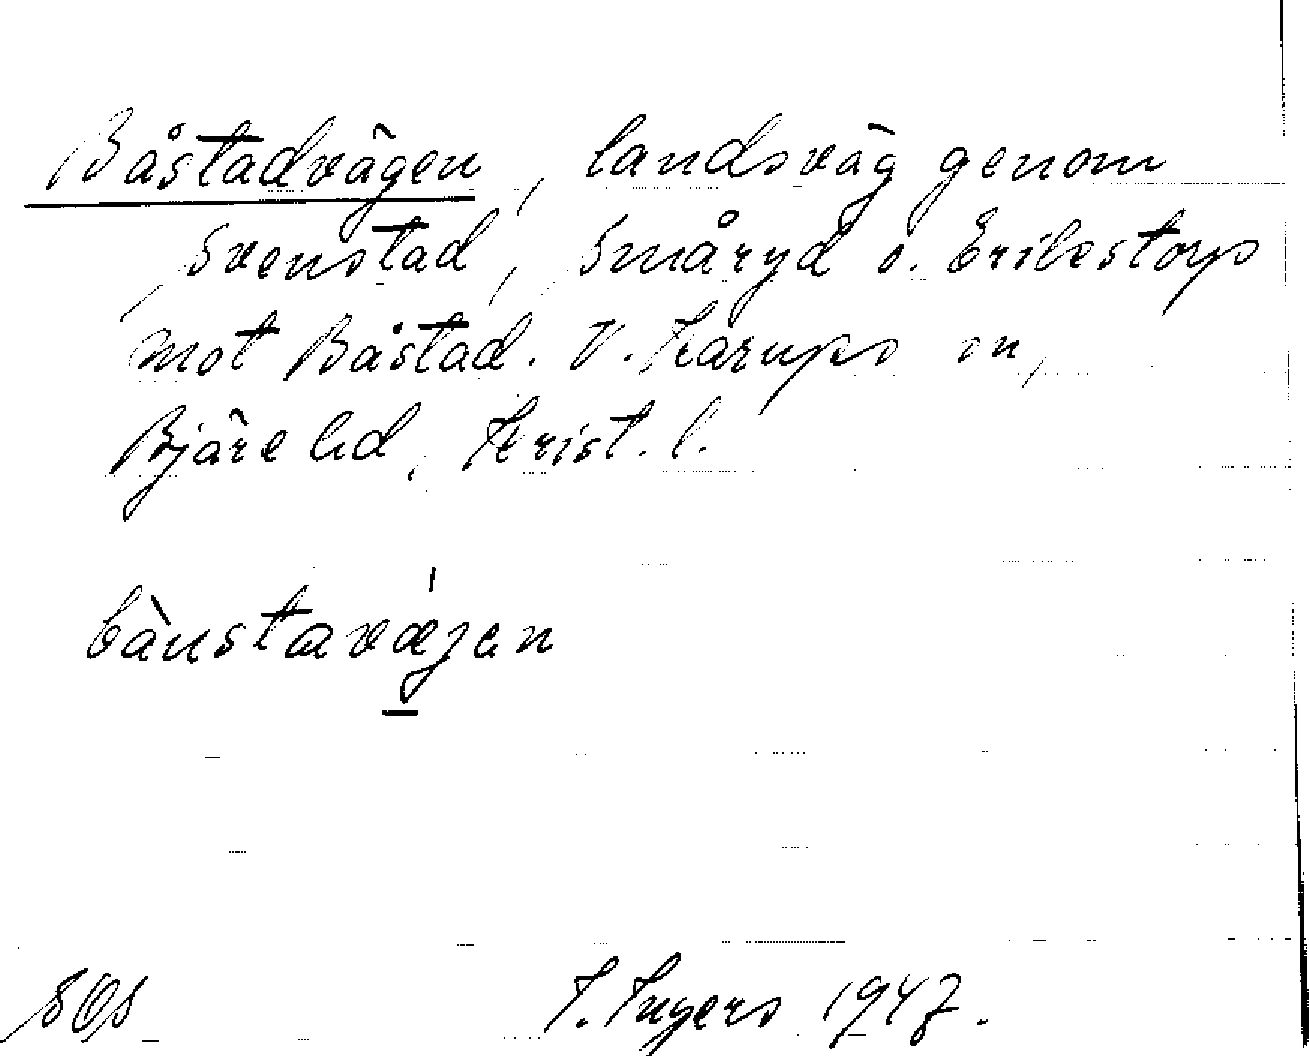 Båstadvägen, landsväg genom
Svenstad, Småryd o. Erikstorp
mot Båstad. V. Karups sn,
Bjäre hd, Krist. l.
bàustavǽjen
I. Ingers 1947.